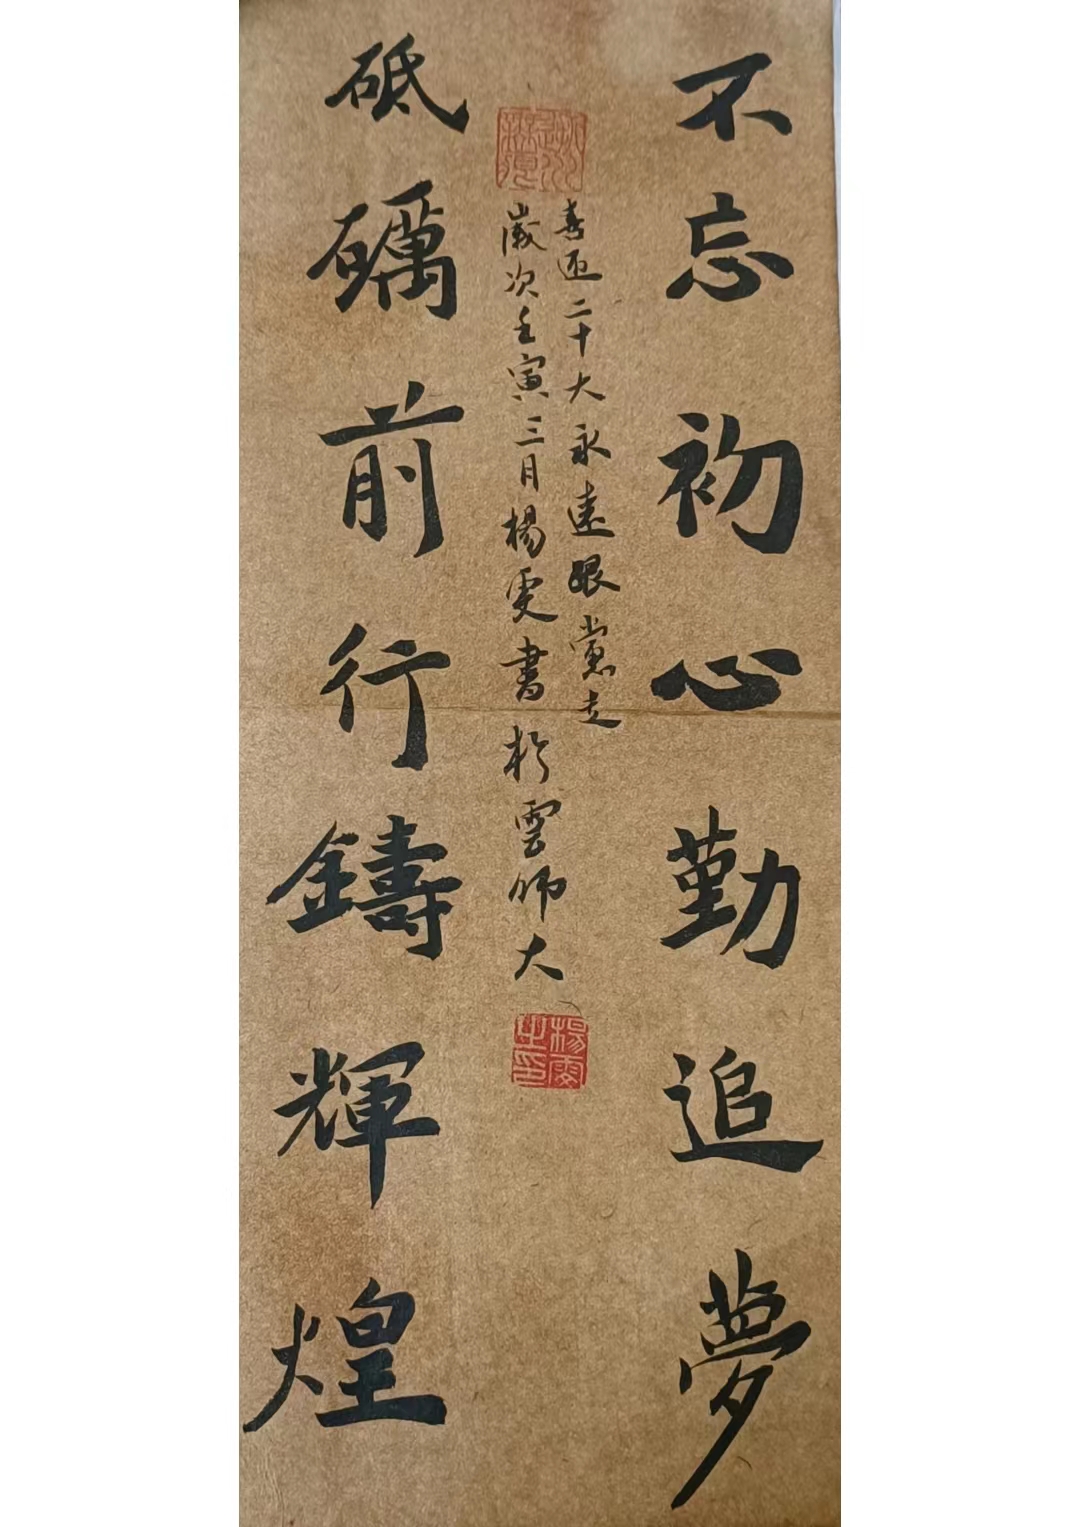 不忘初心勤追夢
喜迎二十大永遠跟黨走
歲次壬寅三月楊雯書於雲師大
楊雯之印
砥礪前行鑄輝煌